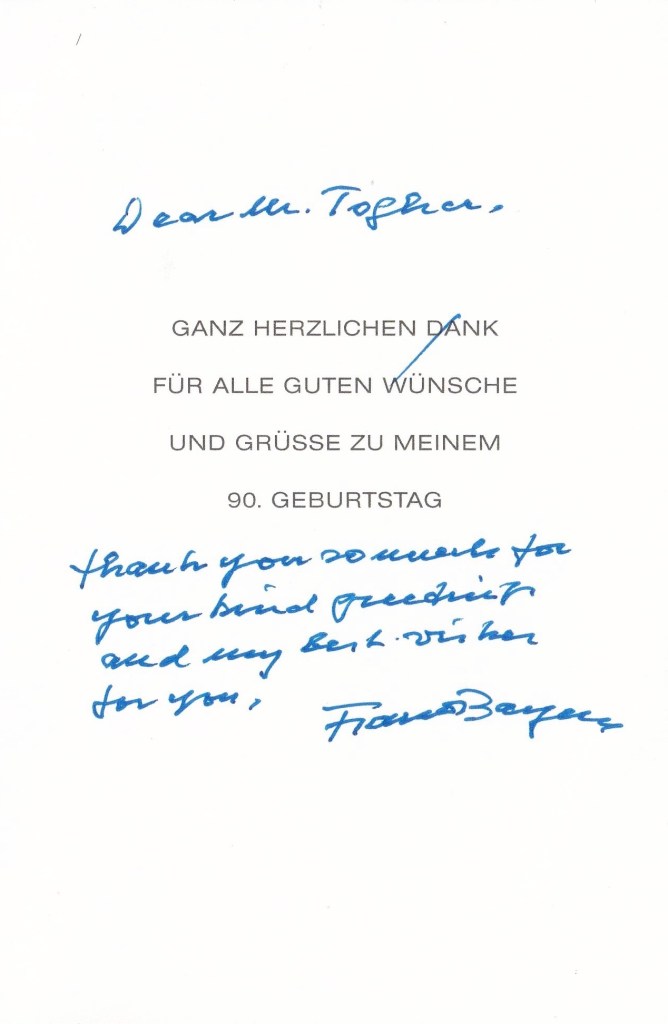 Dear Mr. Togher,
GANZ HERZLICHEN DANK
FÜR ALLE GUTEN WÜNSCHE
UND GRÜSSE ZU MEINEM
90. GEBURTSTAG
thank you so much for
your kind greetings
and my best wishes
for you,
Franz Bayern